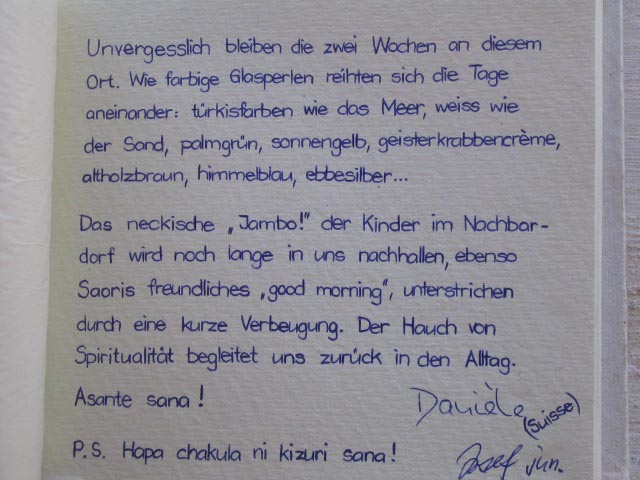 Unvergesslich bleiben die zwei Wochen an diesem
Ort. Wie farbige Glasperlen reihten sich die Tage
aneinander: türkisfarben wie das Meer, weiss wie
der Sand, palmgrün, sonnengelb, geisterkrabbencrème,
altholzbraun, himmelblau, ebbesilber...
Das neckische „Jambo!" der Kinder im Nachbar-
dorf wird noch lange in uns nachhallen, ebenso
Saoris freundliches „good morning", unterstrichen
durch eine kurze Verbeugung. Der Hauch von
Spiritualität begleitet uns zurück in den Alltag.
Asante sana!
Danièle
(Suisse)
P.S. Hapa chakula ni kizuri sana!
Josef jun.